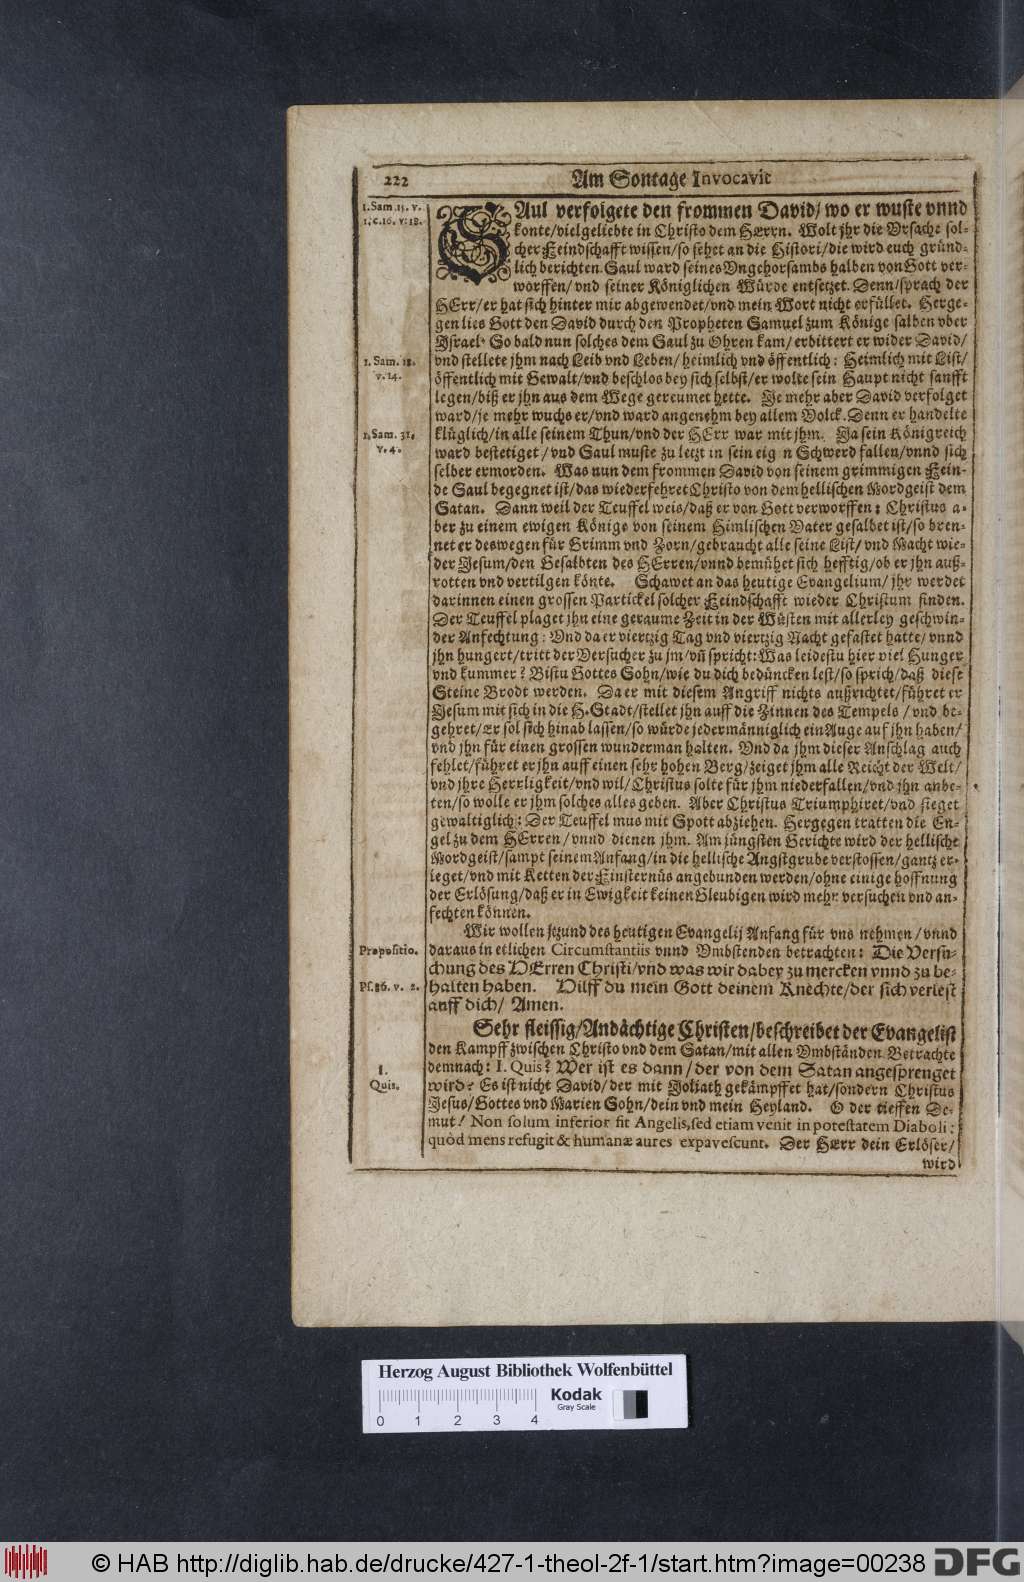 222 Am Sontage Invocavit
1. Sam. 15. v.
1. c. 16. v: 18.
SAul verfolgete den frommen David/ wo er wuste vnnd
konte/ vielgeliebte in Christo dem HErrn. Wolt jhr die Vrsache sol-
cher Feindschafft wissen/ so sehet an die Histori/ die wird euch gründ-
lich berichten. Saul ward seines Vngehorsambs halben von Gott ver-
worffen/ vnd seiner Königlichen Würde entsetzet. Denn/ sprach der
HErr/ er hat sich hinter mir abgewendet/ vnd mein Wort nicht erfüllet. Herge-
gen lies Gott den David durch den Propheten Samuel zum Könige salben vber
Jsrael. So bald nun solches dem Saul zu Ohren kam/ erbittert er wider David/
1. Sam. 18.
v. 14.
vnd stellete jhm nach Leib vnd Leben/ heimlich vnd öffentlich: Heimlich mit List/
öffentlich mit Gewalt/ vnd beschlos bey sich selbst/ er wolte sein Haupt nicht sanfft
legen/ biß er jhn aus dem Wege gereumet hette. Je mehr aber David verfolget
ward/ je mehr wuchs er/ vnd ward angenehm bey allem Volck. Denn er handelte
1. Sam. 31.
v. 4.
klüglich/ in alle seinem Thun/ vnd der HErr war mit jhm. Ja sein Königreich
ward bestetiget/ vnd Saul muste zu letzt in sein eig n Schwerd fallen/ vnnd sich
selber ermorden. Was nun dem frommen David von seinem grimmigen Fein-
de Saul begegnet ist/ das wiederfehret Christo von dem hellischen Mordgeist dem
Satan. Dann weil der Teuffel weis/ daß er von Gott verworffen: Christus a-
ber zu einem ewigen Könige von seinem Himlischen Vater gesalbet ist/ so bren-
net er deswegen für Grimm vnd Zorn/ gebraucht alle seine List/ vnd Macht wie-
der Jesum/ den Gesalbten des HErren/ vnnd bemühet sich hefftig/ ob er jhn auß-
rotten vnd vertilgen könte. Schawet an das heutige Evangelium/ jhr werdet
darinnen einen grossen Partickel solcher Feindschafft wieder Christum finden.
Der Teuffel plaget jhn eine geraume Zeit in der Wüsten mit allerley geschwin-
der Anfechtung: Vnd da er viertzig Tag vnd viertzig Nacht gefastet hatte/ vnnd
jhn hungert/ tritt der Versucher zu jm/ vñ spricht: Was leidestu hier viel Hunger
vnd kummer? Bistu Gottes Sohn/ wie du dich bedüncken lest/ so sprich/ daß diese
Steine Brodt werden. Da er mit diesem Angriff nichts außrichtet/ führet er
Jesum mit sich in die H. Stadt/ stellet jhn auff die Zinnen des Tempels/ vnd be-
gehret/ Er sol sich hinab lassen/ so würde jedermänniglich ein Auge auf jhn haben/
vnd jhn für einen grossen wunderman halten. Vnd da jhm dieser Anschlag auch
fehlet/ führet er jhn auff einen sehr hohen Berg/ zeiget jhm alle Reicht der Welt/
vnd jhre Herrligkeit/ vnd wil/ Christus solte für jhm niederfallen/ vnd jhn anbe-
ten/ so wolle er jhm solches alles geben. Aber Christus Triumphiret/ vnd sieget
gewaltiglich: Der Teuffel mus mit Spott abziehen. Hergegen tratten die En-
gel zu dem HErren/ vnnd dienen jhm. Am jüngsten Gerichte wird der hellische
Mordgeist/ sampt seinem Anfang/ in die hellische Angstgrube verstossen/ gantz er-
leget/ vnd mit Ketten der Finsternüs angebunden werden/ ohne einige hoffnung
der Erlösung/ daß er in Ewigkeit keinen Gleubigen wird mehr versuchen vnd an-
fechten können.
Wir wollen jtzund des heutigen Evangelij Anfang für vns nehmen/ vnnd
Propositio.
daraus in etlichen Circumstantiis vnnd Vmbstenden betrachten: Die Versu-
chung des HErren Christi/ vnd was wir dabey zu mercken vnnd zu be-
Ps. 86. v. 2.
halten haben. Hilff du mein Gott deinem Knechte/ der sich verlest
auff dich/ Amen.
Sehr fleissig/ Andächtige Christen/ beschreibet der Evangelist
den Kampff zwischen Christo vnd dem Satan/ mit allen Vmbständen. Betrachte
I.
Quis.
demnach: I. Quis? Wer ist es dann/ der von dem Satan angesprenget
wird? Es ist nicht David/ der mit Goliath gekämpffet hat/ sondern Christus
Jesus/ Gottes vnd Marien Sohn/ dein vnd mein Heyland. O der tieffen De-
mut! Non solum inferior fit Angelis, sed etiam venit in potestatem Diaboli:
quòd mens refugit & humanæ aures expavescunt. Der HErr dein Erlöser/
wird
Herzog August Bibliothek Wolfenbüttel
0 1 2 3 4
Kodak
Gray Scale
© HAB http://diglib.hab.de/drucke/427-1-theol-2f-1/start.htm?image=00238
DFG